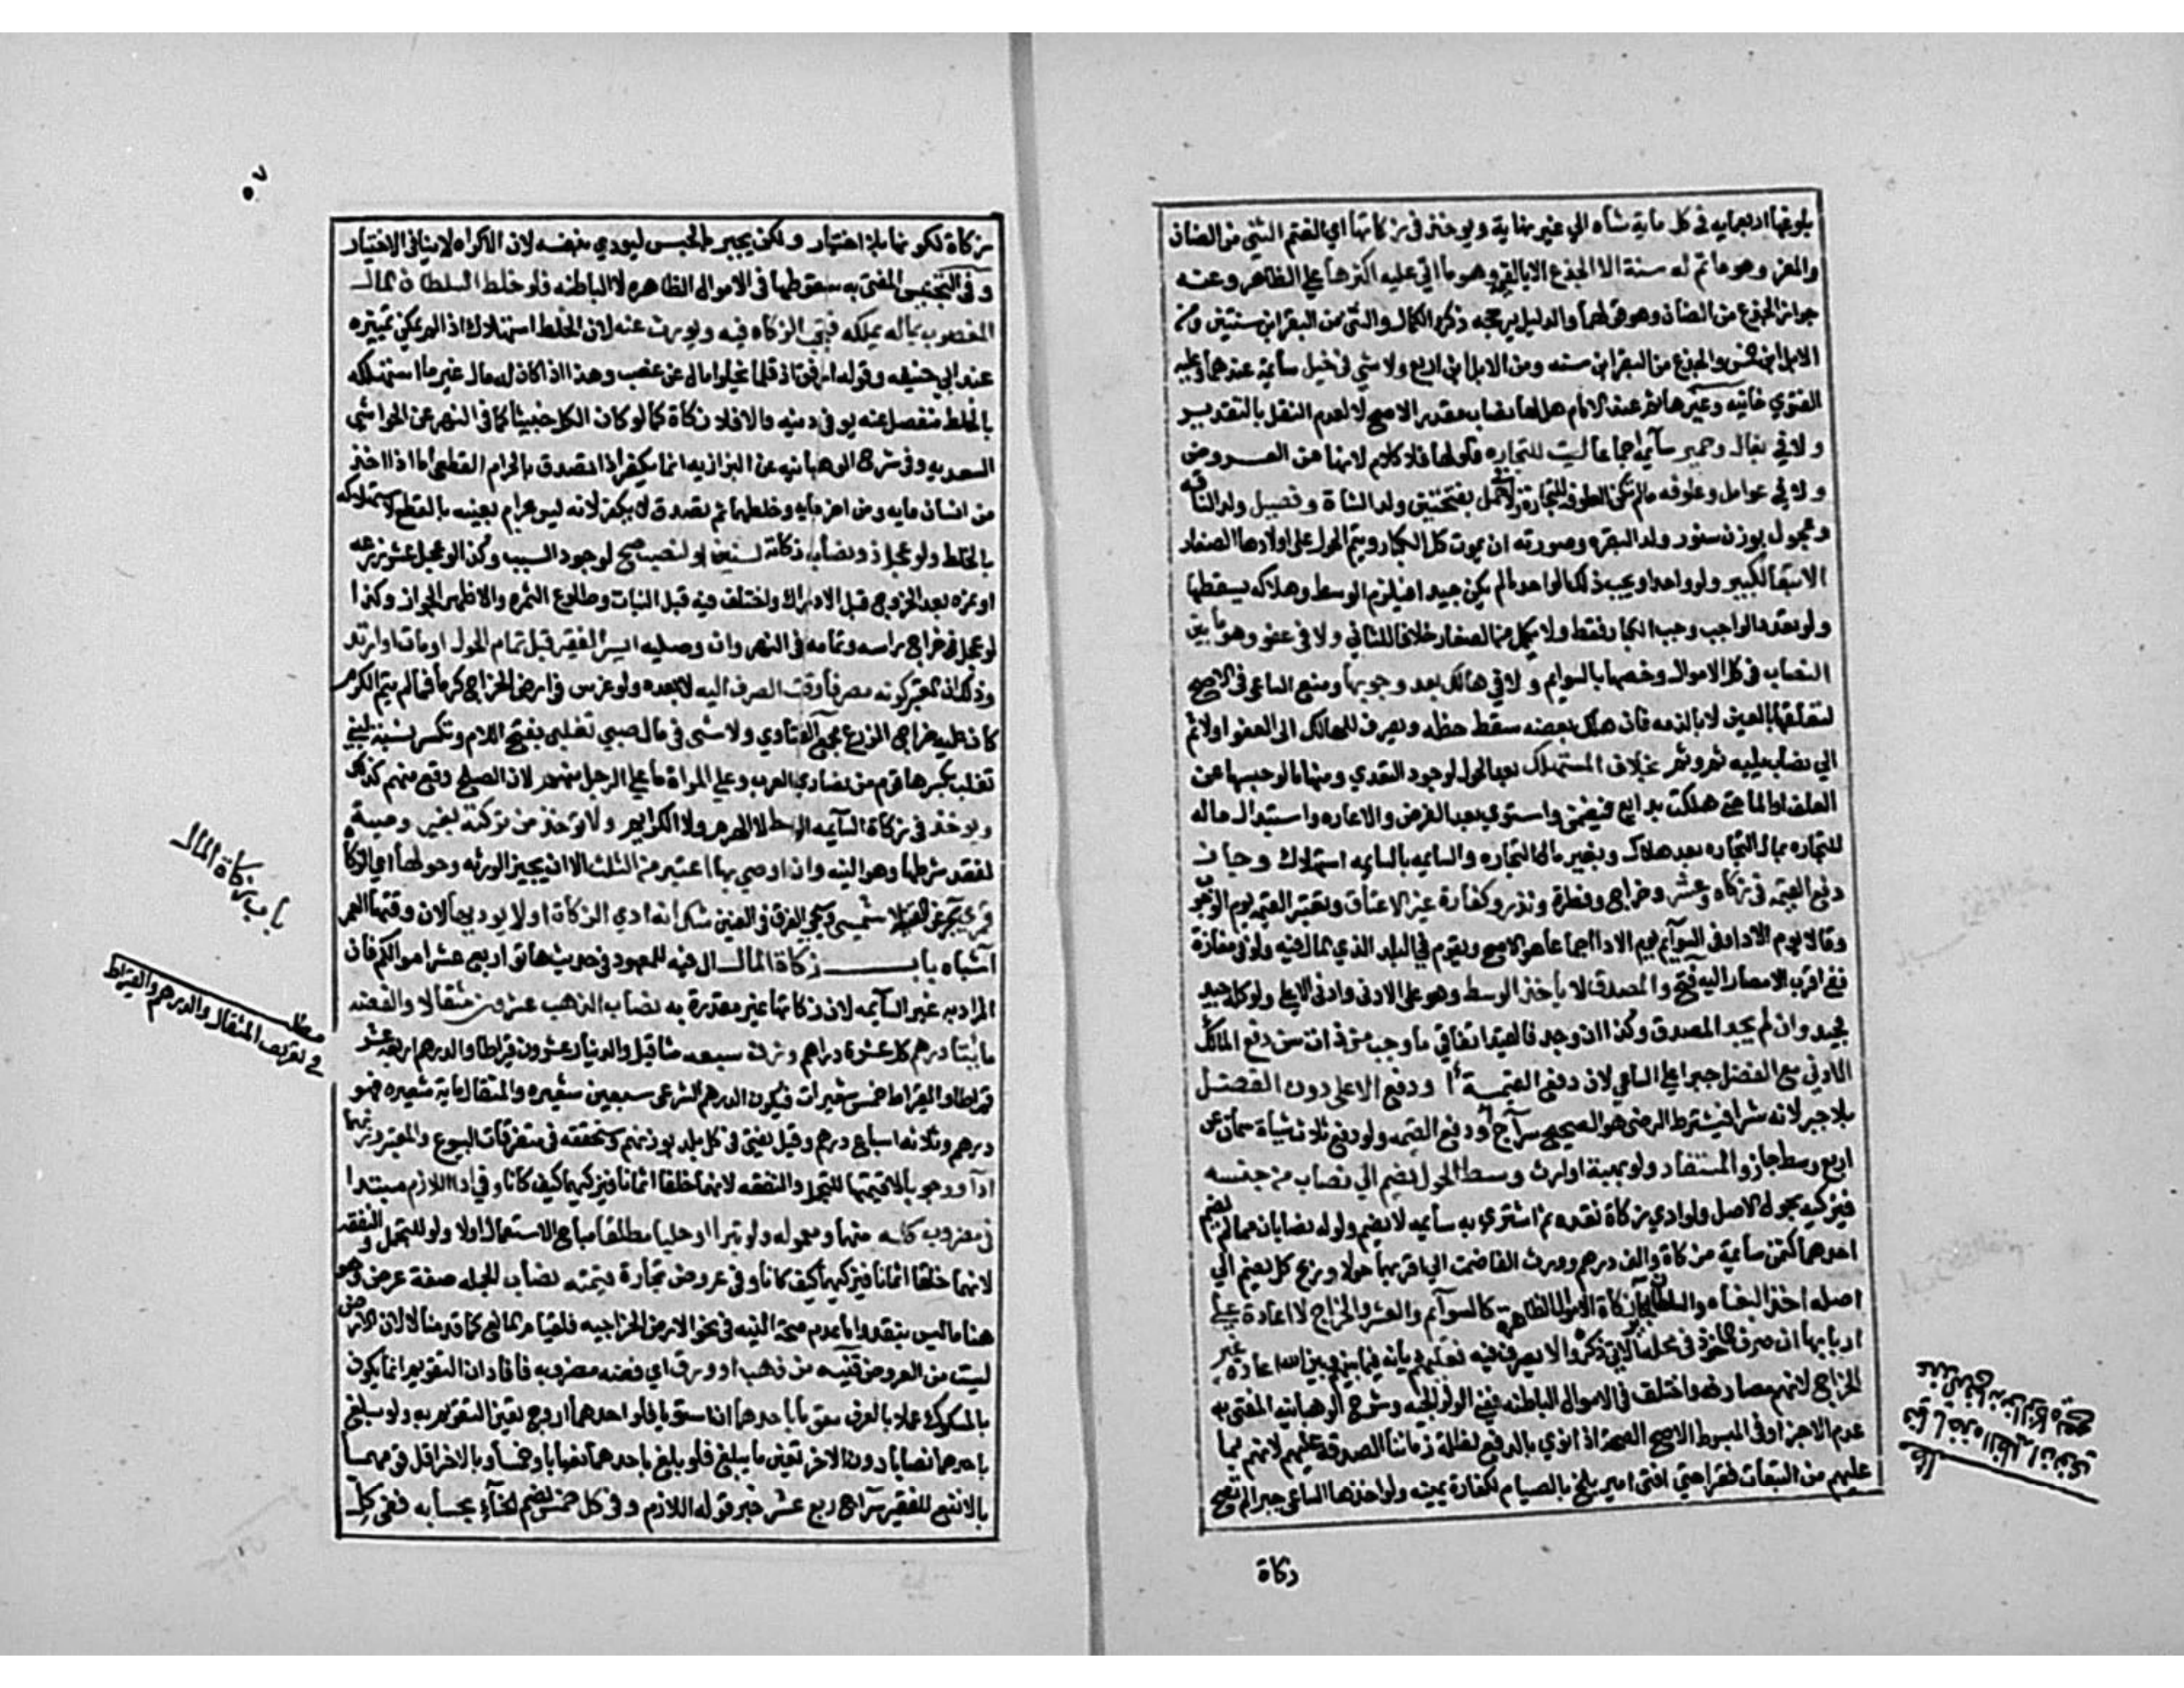 بلوغها اربعمايه في كل ماية شاه الي غير نهاية ويوخذ في زكاتها اي الغنم الثني من الضان
والمعز وهو ما تم له سنة لا الجذع الا بالقيمة وهو ما اتي عليه اكثرها علي الظاهر وعنه
جواز الجذع من الضان وهو قولهما والدليل يرجحه ذكره الكمال والثني من البقر ابن سنتين ومن
الابل ابن خمس والجذع من البقر ابن سنه ومن الابل ابن اربع ولا شي في خيل سايمة عندهما وعليه
الفتوي خانيه وغيرها ثم عند الامام هل لها نصاب مقدر الاصح لا لعدم النقل بالتقدير
ولا في بغال وحمير سايمة اجماعا ليست للتجاره فلو لها فلا كلام لانها من العروض
ولا في عوامل وعلوفه مالم تكن العلوفه للتجارة ولا حمل بفتحتين ولد الشاة وفصيل ولد الناقه
وعجول بوزن سنور ولد البقره وصورته ان يموت كل الكبار ويتم الحول علي اولادها الصغار
الا تبعا لكبير ولو واحدا ويجب ذلك الواحد مالم يكن جيدا فيلزم الوسط وهلاكه يسقطها
ولو تعدد الواجب وجب الكبار فقط ولا يكمل من الصغار خلافا للثاني ولا في عفو وهو ما بين
النصاب في كل الاموال وخصها بالسوايم ولا في هالك بعد وجوبها ومنع الساعي في الاصح
لتعلقها بالعين لا بالذمه فان هلك بعضه سقط حظه ويصرف للهالك الي العفو اولا ثم
الي نصاب يليه ثم وثم بخلاف المستهلك بعد الحول لوجود التعدي ومنه ما لو حبسها عن
العلف او الما حتي هلكت بدايع فيضمن واستوي بعد القرض والاعاره واستبدال مال
للتجاره بمال التجاره بعد هلاك وبغير مال التجاره والسايمه بالسايمه استهلاك وجاز
دفع القيمة في زكاه وعشر وخراج وفطرة ونذر وكفارة غير الاعتاق وتعتبر القيمه يوم الوجوب
وقالا يوم الادا وفي السوآيم يوم الادا اجماعا هو الاصح ويقوم في البلد الذي المال فيه ولو في مفازة
ففي اقرب الامصار اليه فتح والمصدق لا ياخذ الا الوسط وهو علي الادني وادني الاعلي ولو كله جيد
فجيد وان لم يجد المصدق وكذا ان وجد فالقيد اتفاقي ما وجب من ذات سن دفع المالك
الادني مع الفضل جبرا علي الساعي لان دفع القيمة او دفع الاعلي ورد الفضل
بلا جبر لانه شرا فيشترط الرضي هو الصحيح سراج او دفع القيمه ولو دفع ثلاث شياة سمان عن
اربع وسط جاز والمستفاد ولو بهبة او ارث وسط الحول يضم الي نصاب من جنسه
فيزكيه بحول الاصل ولو ادي زكاة نقده ثم اشتري به سايمه لا تضم ولو له نصابان مما لم يضم
احدهما كثمن سايمة مزكاة والف درهم وورث الفا ضمت الي اقربهما حولا وربح كل يضم الي
اصله اخذ البغاه والسلاطين الجايرة زكاة الاموال الظاهره كالسوآيم والعشر والخراج لا اعادة علي
اربابها ان صرف الماخوذ في محله الاتي ذكره والا يصرف فيه فعليهم ديانة فيما بينهم وبين الله اعادة غير
الخراج لانهم مصارفه واختلف في الاموال الباطنه ففي الولوالجيه وشرح الوهبانيه المفتي به
عدم الاجزا وفي المبسوط الاصح الصحة اذا نوي بالدفع لظلمة زماننا الصدقة عليهم لانهم بما
عليهم من التبعات فقرا حتي افتي امير بلخ بالصيام لكفارة يمينه ولو اخذها الساعي جبرا لم تقع
زكاة
٥٧
زكاة لكونها بلا اختيار ولكن يجبر بالحبس ليودي بنفسه لان الاكراه لا ينافي الاختيار
وفي التجنيس المفتي به سقوطها في الاموال الظاهره لا الباطنه فلو خلط السلطان المال
المغصوب بماله يملكه فتجب الزكاه فيه ويورث عنه لان الخلط استهلاك اذا لم يمكن تمييزه
عند ابي حنيفه وقوله ارفق اذ قلما يخلوا مال عن غصب وهذا اذا كان له مال غير ما استهلكه
بالخلط منفصل عنه يوفي دينه والا فلا زكاة كما لو كان الكل خبيثا كما في النهر عن الحواشي
السعديه وفي شرح الوهبانيه عن البزازيه انما يكفر اذا تصدق بالحرام القطعي اما اذا اخذ
من انسان مايه ومن اخر مايه وخلطهما ثم تصدق لا يكفر لانه ليس بحرام بعينه بالقطع لاستهلاكه
بالخلط ولو عجل ذو نصاب زكاته لسنين او لنصب صح لوجود السبب وكذا لو عجل عشر زرعه
او ثمره بعد الخروج قبل الادراك واختلف فيه قبل النبات وطلوع الثمره والاظهر الجواز وكذا
لو عجل خراج راسه وتمامه في النهر وان وصليه ايسر الفقير قبل تمام الحول او مات او ارتد
وذلك لان المعتبر كونه مصرفا وقت الصرف اليه لا بعده ولو غرس في ارض الخراج كرما فمالم يتم الكرم
كان عليه خراج الزرع مجمع الفتاوي ولا شي في مال صبي تغلبي بفتح اللام وتكسر نسبة لبني
تغلب بكسرها قوم من نصاري العرب وعلي المراة ما علي الرجل منهم لان الصلح وقع منهم كذلك
ويوخذ في زكاة السآيمه الوسط لا الهرم ولا الكرايم ولا توخذ من تركته بغير وصية
لفقد شرطها وهو النيه وان اوصي بها اعتبر من الثلث الا ان يجيز الورثه وحولها اي الزكاة
قمري بحر عن القنية لا شمسي وسيجي الفرق في العنين شك انه ادي الزكاة او لا يوديها لان وقتها العمر
اشباه باب زكاة المال ال فيه للمعهود في حديث هاتوا ربع عشر اموالكم فان
المراد به غير السآيمه لان زكاتها غير مقدرة به نصاب الذهب عشرون مثقالا والفضه
مايتا درهم كل عشرة دراهم وزن سبعه مثاقيل والدينار عشرون قيراطا والدرهم اربعة عشر
قيراطا والقيراط خمس شعيرات فيكون الدرهم الشرعي سبعين شعيره والمثقال ماية شعيره فهو
درهم وثلاثه اسباع درهم وقيل يفتي في كل بلد بوزنهم وسنحققه في متفرقات البيوع والمعتبر وزنهما
ادآ ووجوبا لا قيمتهما للتجمل والنفقه لانهما خلقا اثمانا فيزكيهما كيف كانا وفي ادا اللازم مبتدا
في مضروب كل منهما ومعموله ولو تبرا او حليا مطلقا مباح الاستعمال اولا ولو للتجمل والنفقه
لانهما خلقا اثمانا فيزكيهما كيف كانا وفي عروض تجارة قيمته نصاب الجمله صفة عرض وهو
هنا ما ليس بنقد واما عدم صحة النيه في نحو الارض الخراجيه فلقيام المانع كما قدمنا لا لان الارض
ليست من العروض فتنبه من ذهب او ورق اي فضه مضروبه فافاد ان التقويم انما يكون
بالمسكوك عملا بالعرف مقوما باحدهما ان استويا فلو احدهما اروج تعين التقويم به ولو بلغ
باحدهما نصابا دون الاخر تعين ما يبلغ فلو بلغ باحدهما نصابا وخمسا وبالاخر اقل قومه
بالانفع للفقير سراج ربع عشر خبر قوله اللازم وفي كل خمس بضم الخآء بحسابه ففي كل
باب زكاة المال
مطلب
في تعريف المثقال والدرهم والقيراط